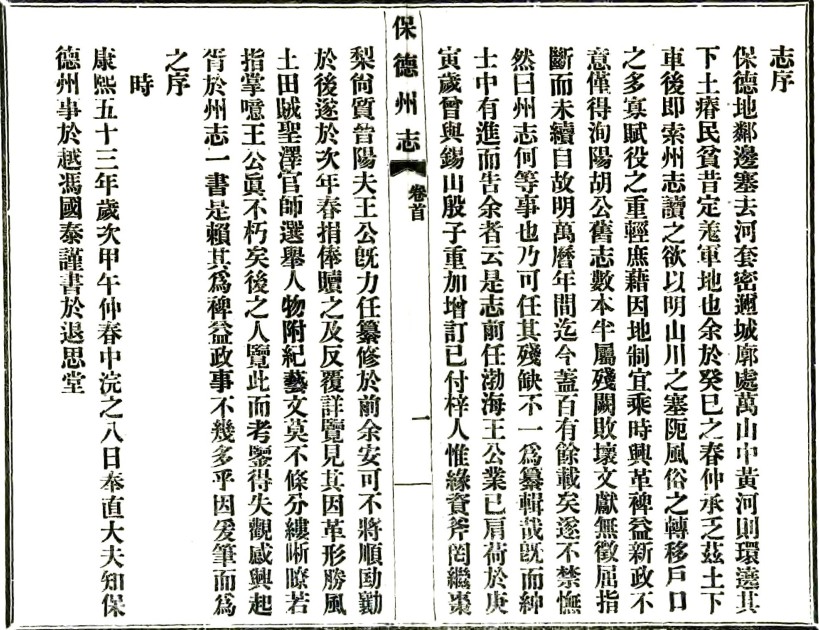 志序
保德地鄰邊塞去河套密邇城廓處萬山中黃河則環遶其
下土瘠民貧昔定羗軍地也余於癸巳之春仲承乏茲土下
車後即索州志讀之欲以明山川之塞阨風俗之轉移戶口
之多寡賦役之重輕庶藉因地制宜乘時興革裨益新政不
意僅得洵陽胡公舊志數本半屬殘闕敗壞文獻無徵屈指
斷而未續自故明萬曆年間迄今蓋百有餘載矣遂不禁憮
然曰州志何等事也乃可任其殘缺不一爲纂輯哉旣而紳
士中有進而吿余者云是志前任渤海王公業已肩荷於庚
寅歲曾與錫山殷子重加增訂已付梓人惟緣資斧罔繼棗
保德州志
卷首
一
梨尙質昔陽夫王公旣力任纂修於前余安可不將順勷
於後遂於次年春捐俸贖之及反覆詳覽見其因革形勝風
土田賦聖澤官師選舉人物附紀藝文莫不條分縷晰瞭若
指掌噫王公眞不朽矣後之人覽此而考鑒得失觀感興起
胥於州志一書是賴其爲裨益政事不幾多乎因爰筆而爲
之序
時
康熙五十三年歲次甲午仲春中浣之八日奉直大夫知保
德州事於越馮國泰謹書於退思堂